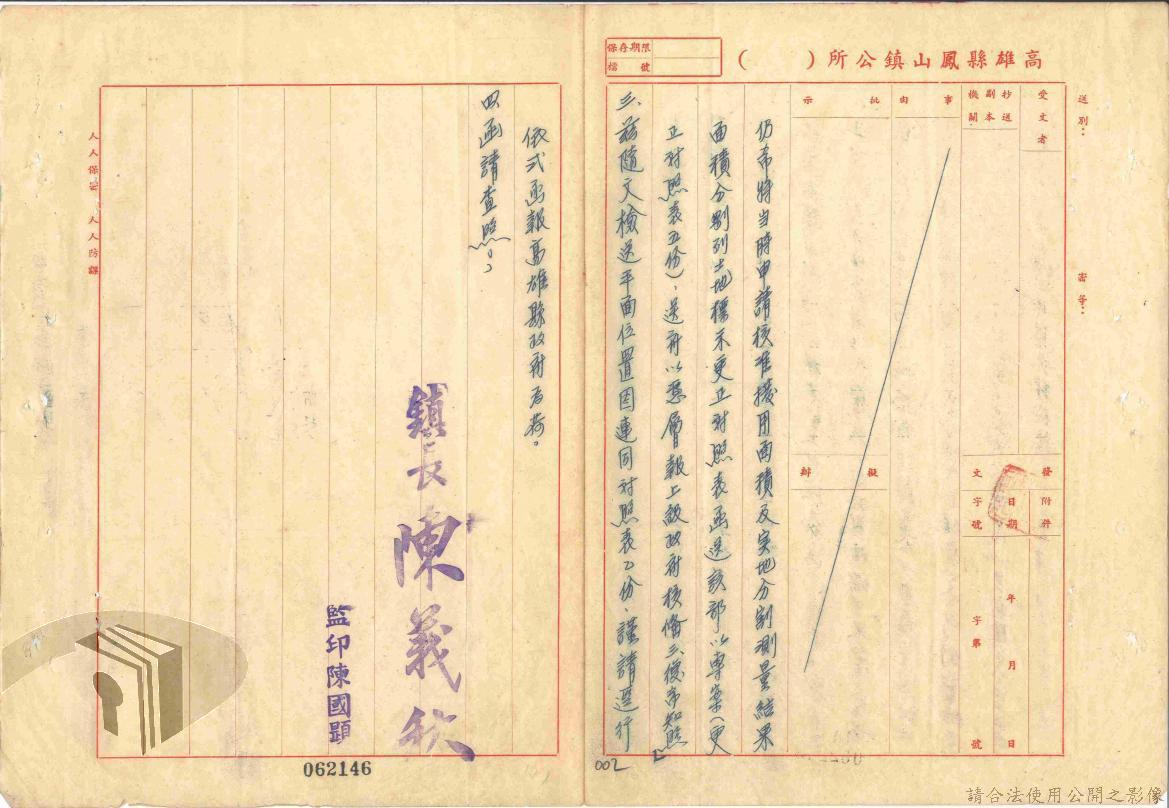 高雄縣鳳山鎮公所（　）
保存期限
檔號
送別：
密等：
受文者
抄送副本機關
事由
批示
擬辦
發文
附件
日期
字號
年月日
字第號
仍希將当時申請核准撥用面積及实地分割測量結果
面積分別列土地標示更正対照表函送該部以專案（更
正対照表五份）送府以憑層報上級政府核備三、復希知照
三、茲隨文檢送平面位置図連同対照表乙份、謹請逕行
依式函報高雄縣政府為荷。
四函請查照。
鎮長陳義秋
監印陳國顯
人人保密　人人防諜
062146
002
請合法使用公開之影像